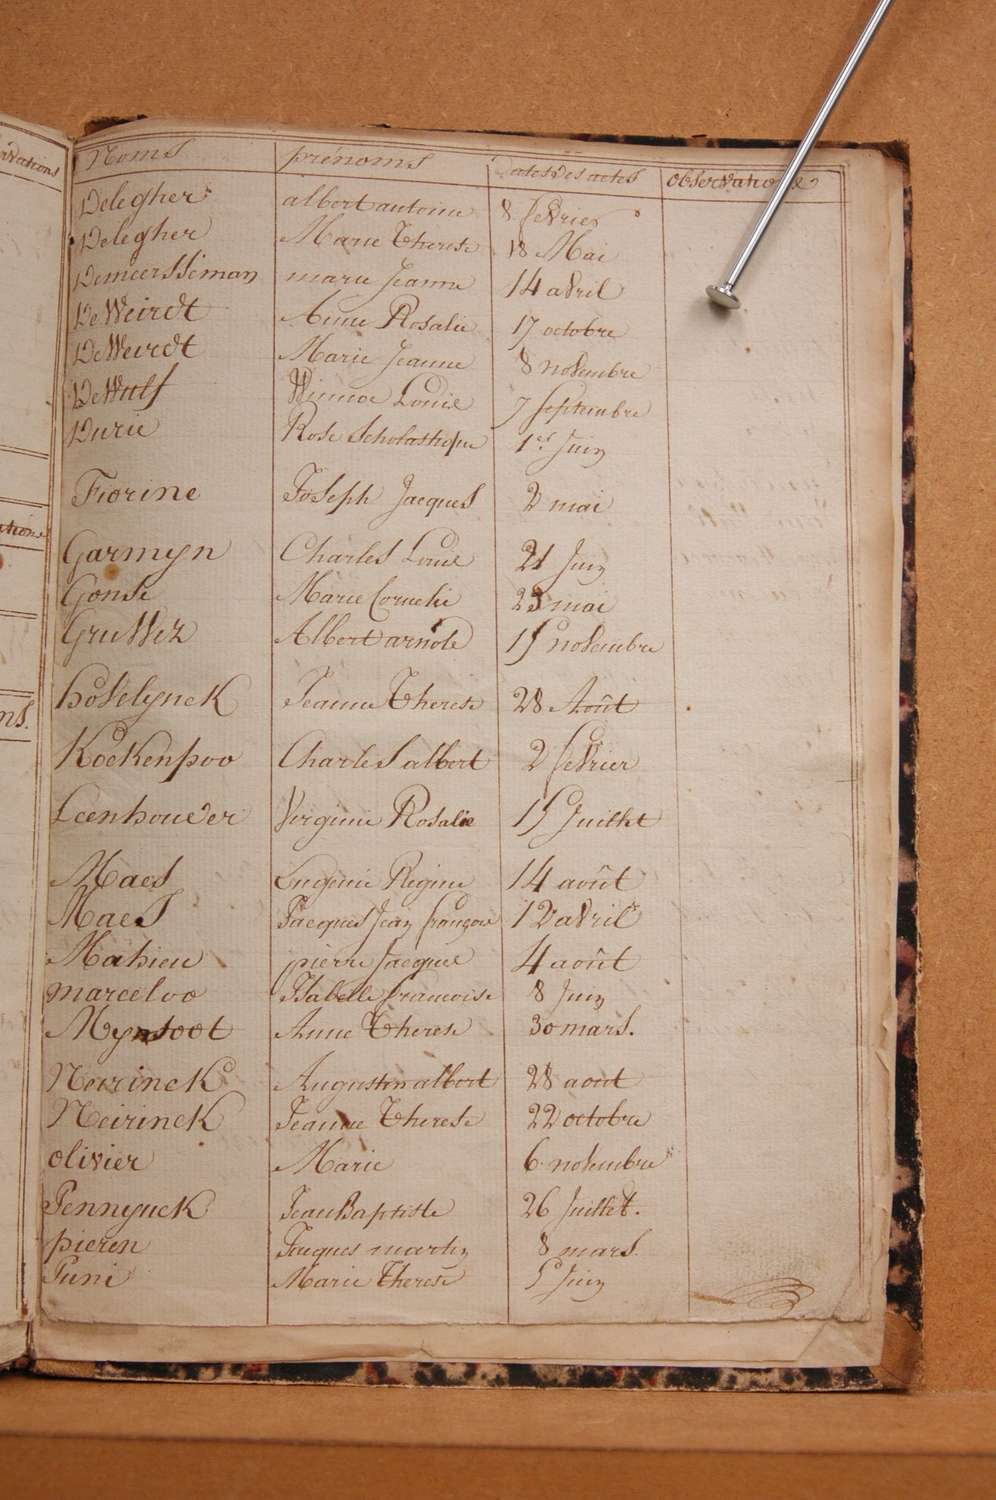 Noms prénoms Dates Des actes Observations
Delegher albert antoine 8 fevrier
Delegher Marie Therese 18 Mai
Demeersseman marie Jeanne 14 avril
DeWeirdt Anne Rosalie 17 octobre
DeWeirdt Marie Jeanne 8 novembre
DeWulf Louise 7 Septembre
Durie Rose Scholastique 1er Juin
Fiorine Joseph Jacques 2 mai
Garmyn Charles Louis 21 Juin
Gonse Marie Cornelie 23 mai
Gruwez Albert arnold 15 novembre
hoselynck Jeanne Therese 28 Août
Koekenpoo Charles albert 2 fevrier
Leenhouder Virginie Rosalie 15 Juillet
Maes Eugenie Regine 14 août
Maes Jacques Jean françois 12 avril
Mahieu pierre Jacques 4 août
marceloo Isabelle francoise 8 Juin
Mynsoot Anne Therese 30 mars.
Neirinck Augustin albert 28 aout
Neirinck Jeanne Therese 22 octobre
olivier Marie 6 novembre
Pennynck Jean Baptiste 26 Juillet.
pieren Jaques martin 8 mars
Puni Marie Therese 5 Juin